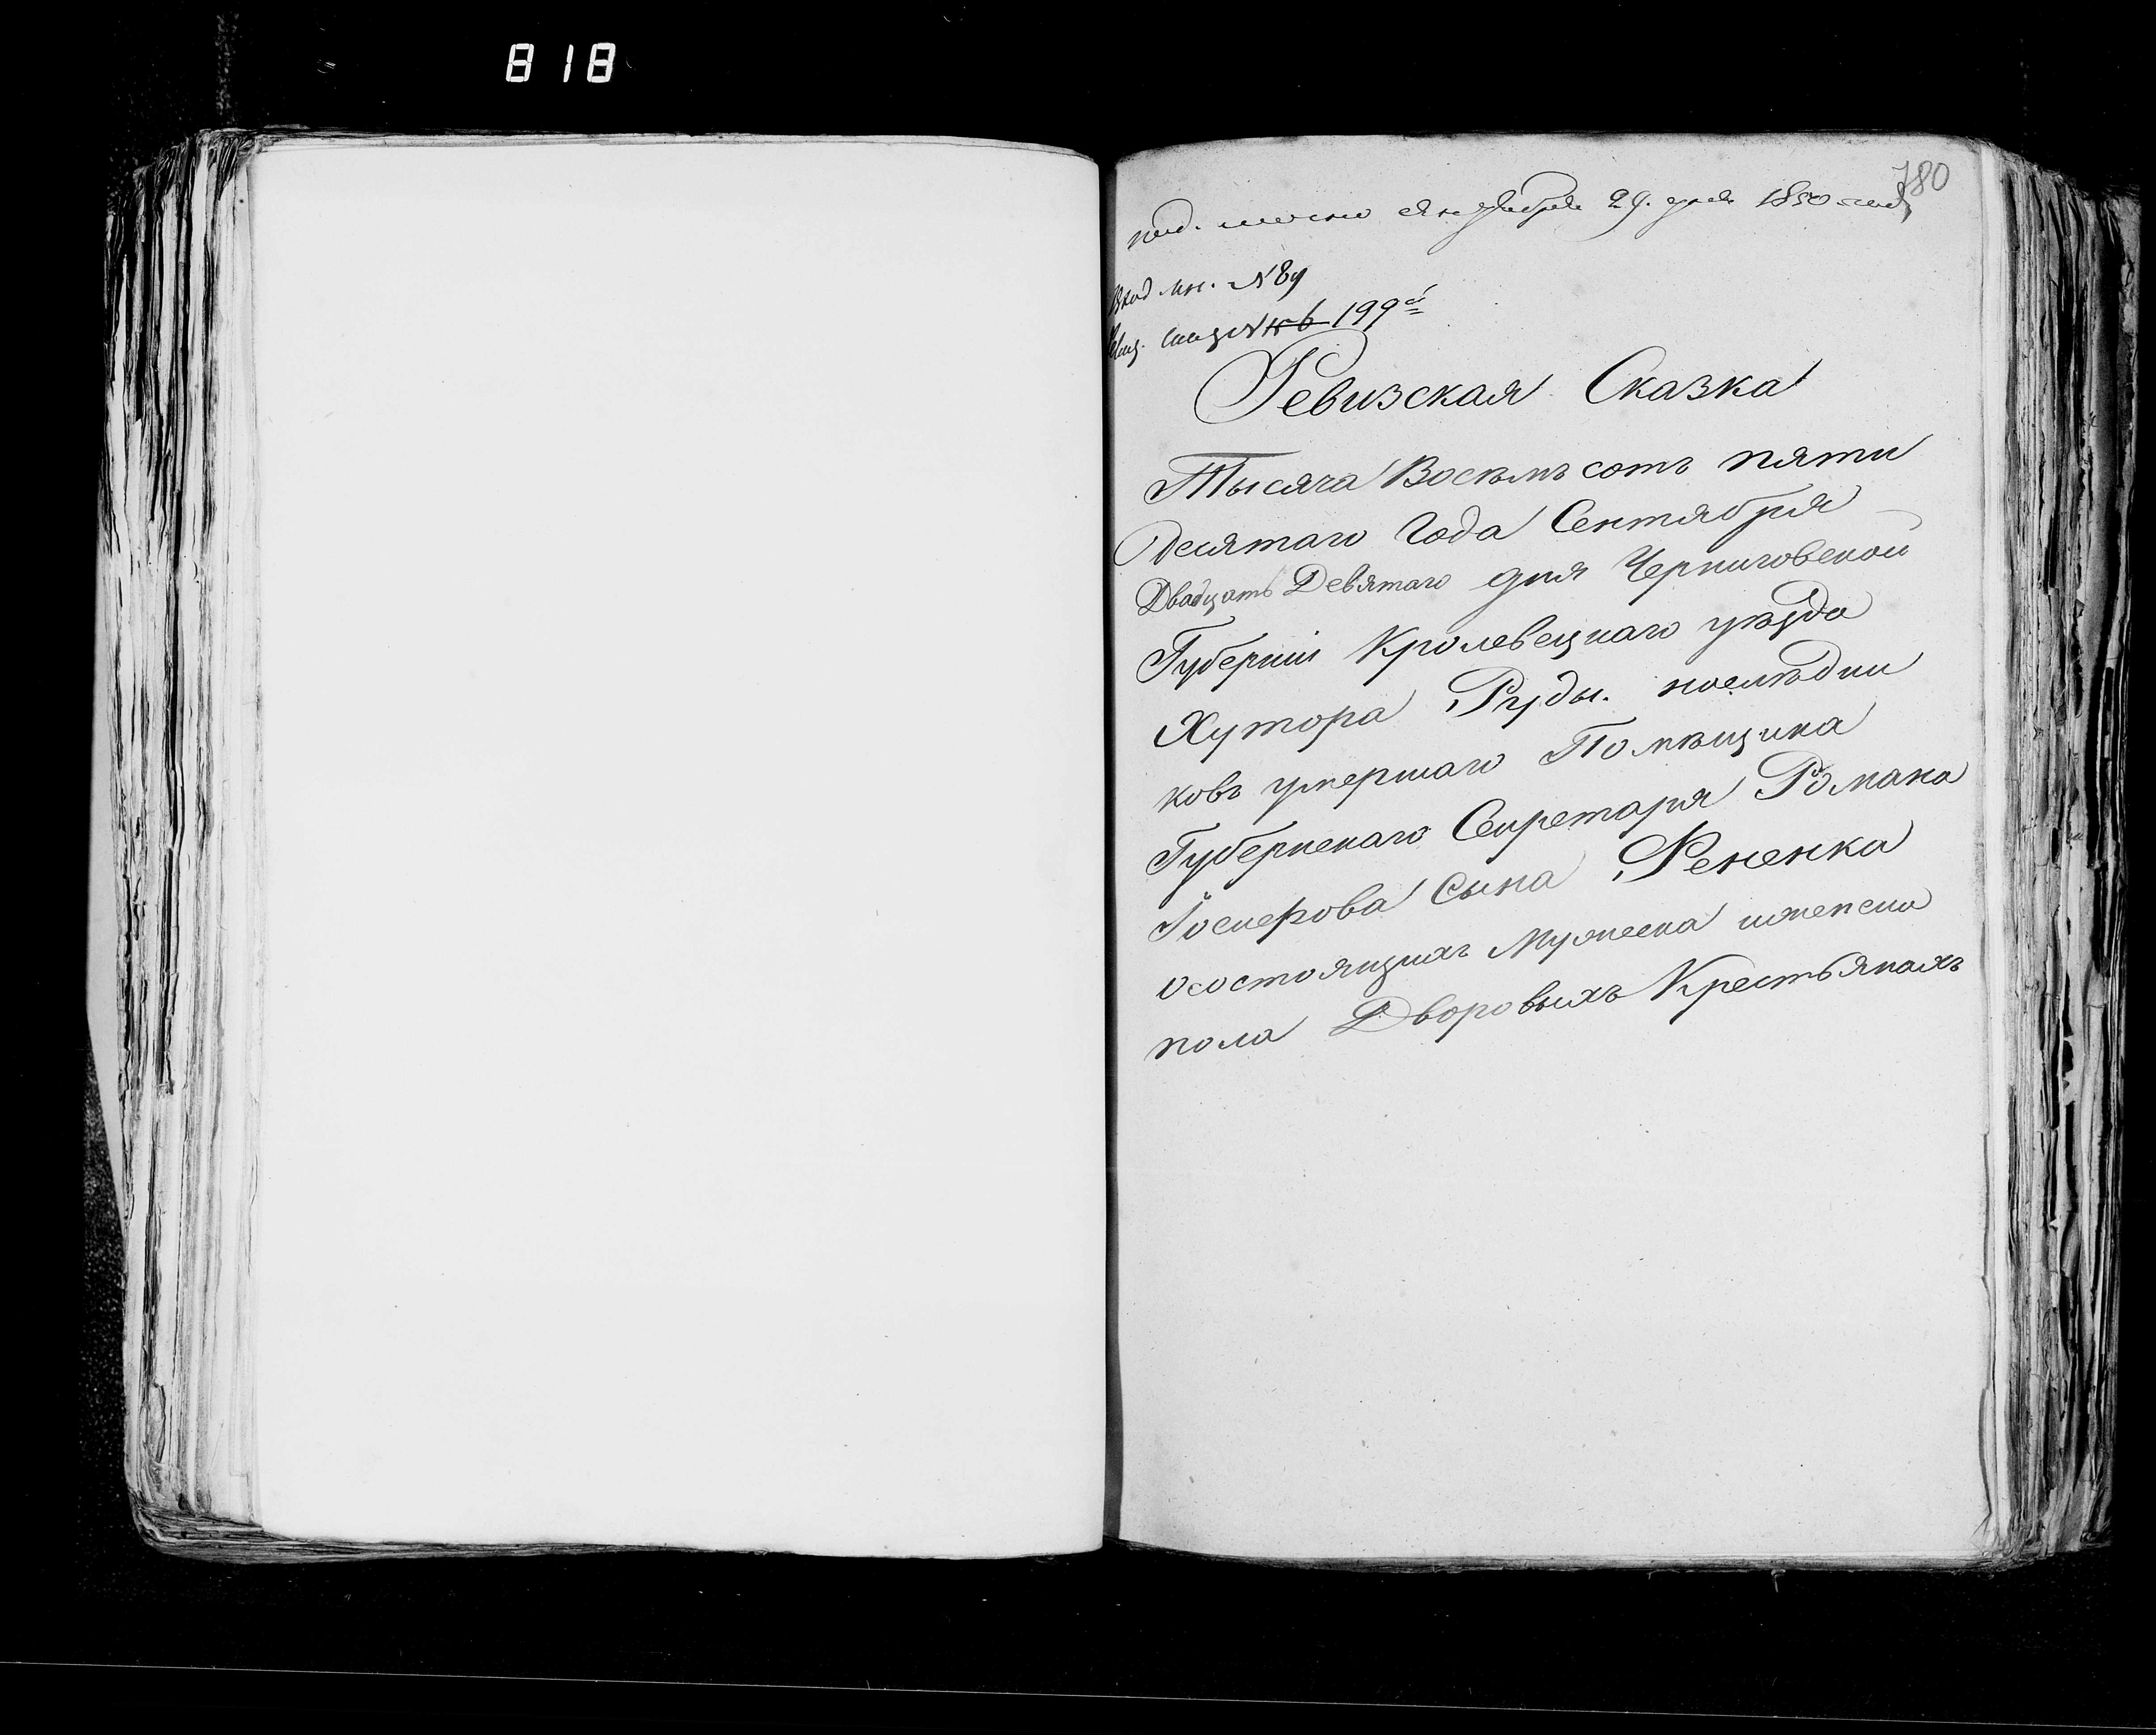 818
780
под. лично сентября 29. дня 1850 года
Вход №. №89
199й
Ревизская Сказка
Тысяча Восемъ сотъ пяти
Десятаго Года Сентября
Двадцать Девятаго дня Черниговской
Губерніи Кролевецкаго уѣзда
Хутора Руды. наслѣдни
ковъ умершаго Помѣщика
Губернскаго Секретаря Романа
Іосиерова Сына Рененка
осостоящихъ Мужеска иженска
пола Дворовыхъ Крестьянахъ